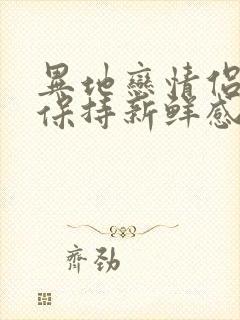 異地戀情侶
保持新鮮感
齊勁